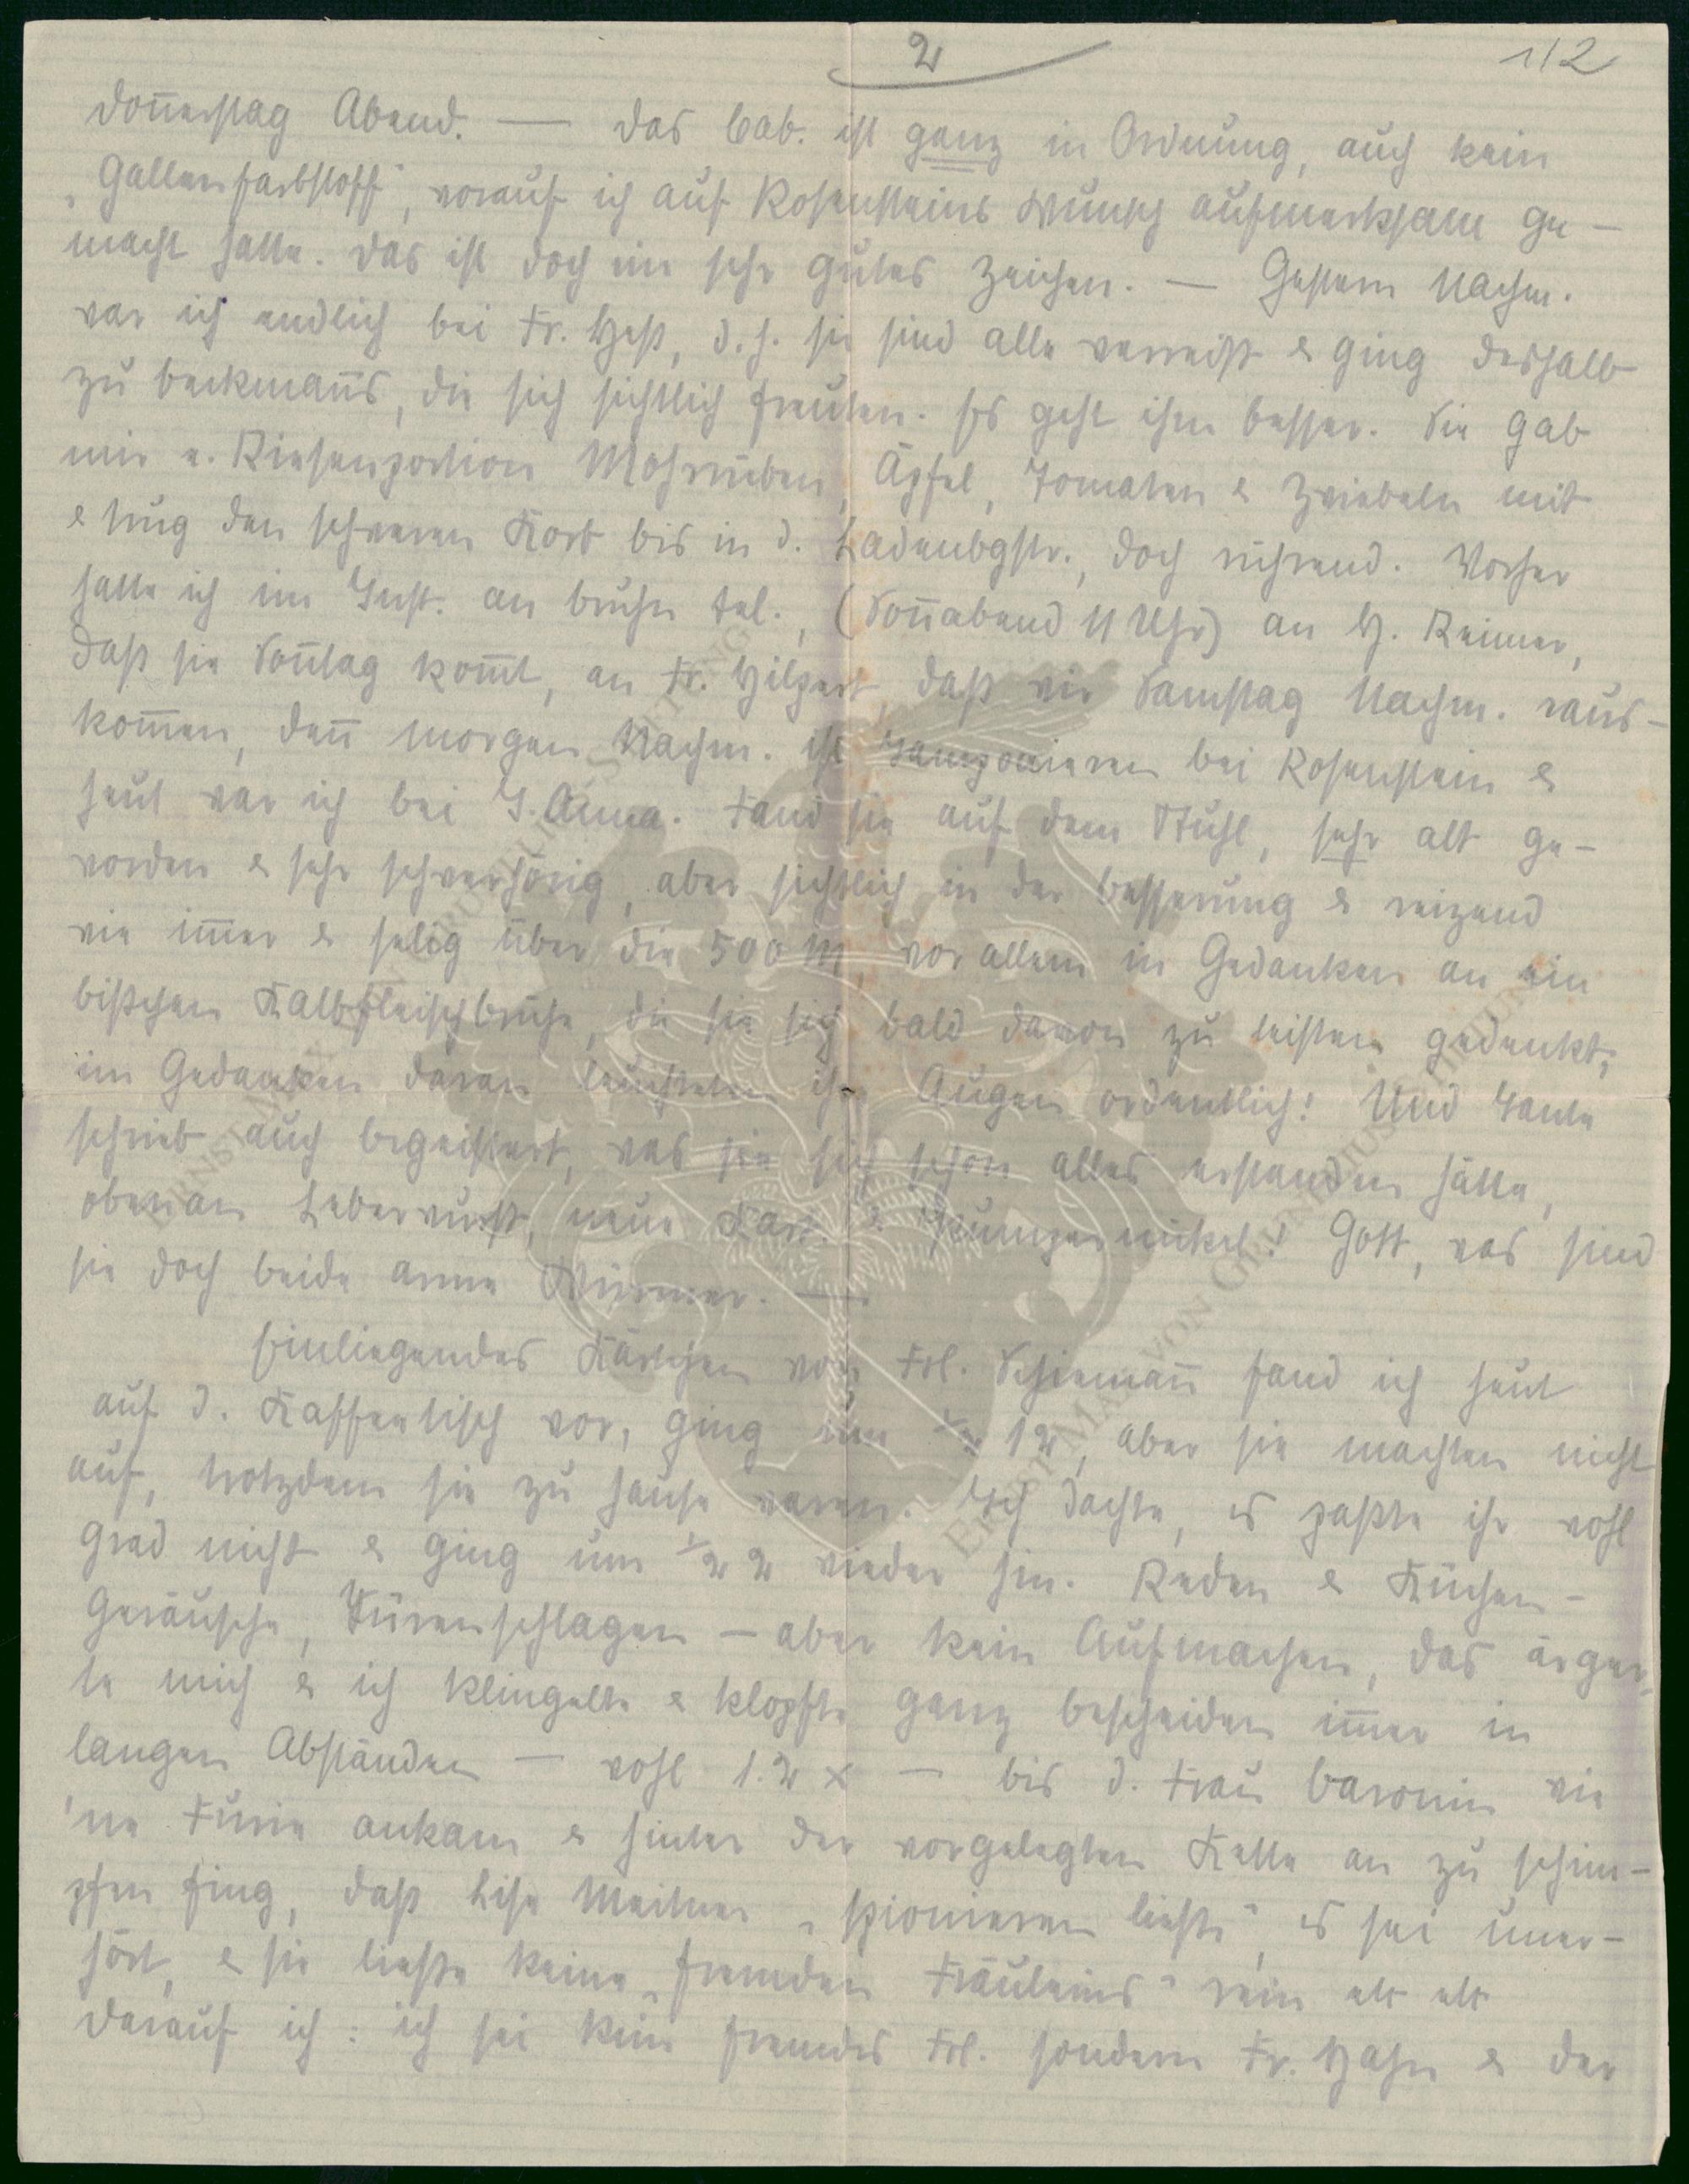 2
112
Donnerstag Abend. — Das Lab. ist ganz in Ordnung, auch kein
„Gallenfarbstoff", worauf ich auf Rosensteins Wunsch aufmerksam ge-
macht hatte. Das ist doch ein sehr gutes Zeichen. — Gestern Nachm.
war ich endlich bei Fr. Heß, d. h. sie sind alle verreist & ging deshalb
zu Beckmanns, die sich sichtlich freuten. Es geht ihm besser. Sie gab
mir e. Riesenportion Mohrrüben, Äpfel, Tomaten & Zwiebeln mit
& trug den schweren Korb bis in d. Ladenbgstr., doch rührend. Vorher
hatte ich im Inst. an Bruhn tel., (Sonnabend 11 Uhr) an H. Reimer,
daß sie Sonntag kommt, an Fr. Hilpert, daß wir Samstag Nachm. raus-
kommen, denn morgen Nachm. ist bei Rosenstein &
heut war ich bei T. Anna. Fand sie auf dem Stuhl, sehr alt ge-
worden & sehr schwerhörig, aber sichtlich in der Besserung & reizend
wie immer & selig über die 500 M, vor allem in Gedanken an ein
bißchen Kalbfleischbrühe, die sie sich bald davon zu leisten gedenkt;
im Gedanken daran leuchteten ihre Augen ordentlich! Und Tante
schrieb auch begeistert, was sie sich schon alles erstanden hätte,
obenan Leberwurst, neue Kart. & Pumpernickel! Gott, was sind
sie doch beide arme Würmer. —
Einliegendes Kärtchen von Frl. Schiemann fand ich heut
auf d. Kaffeetisch vor, ging um ½ 12, aber sie machten nicht
auf, trotzdem sie zu Hause waren. Ich dachte, es paßte ihr wohl
grad nicht & ging um ½ 2 wieder hin. Reden & Küchen-
geräusche, Türenschlagen — aber kein Aufmachen, das ärger-
te mich & ich klingelte & klopfte ganz bescheiden immer in
langen Abständen — wohl 12 x — bis d. Frau Baronin wie
'ne Furie ankam & hinter der vorgelegten Kette an zu schim-
pfen fing, daß Lise Meitner „spionieren ließe", es sei uner-
hört, & sie ließe keine „fremden Fräuleins" rein etc etc
Darauf ich: ich sei kein fremdes Frl. sondern Fr. Hahn & der